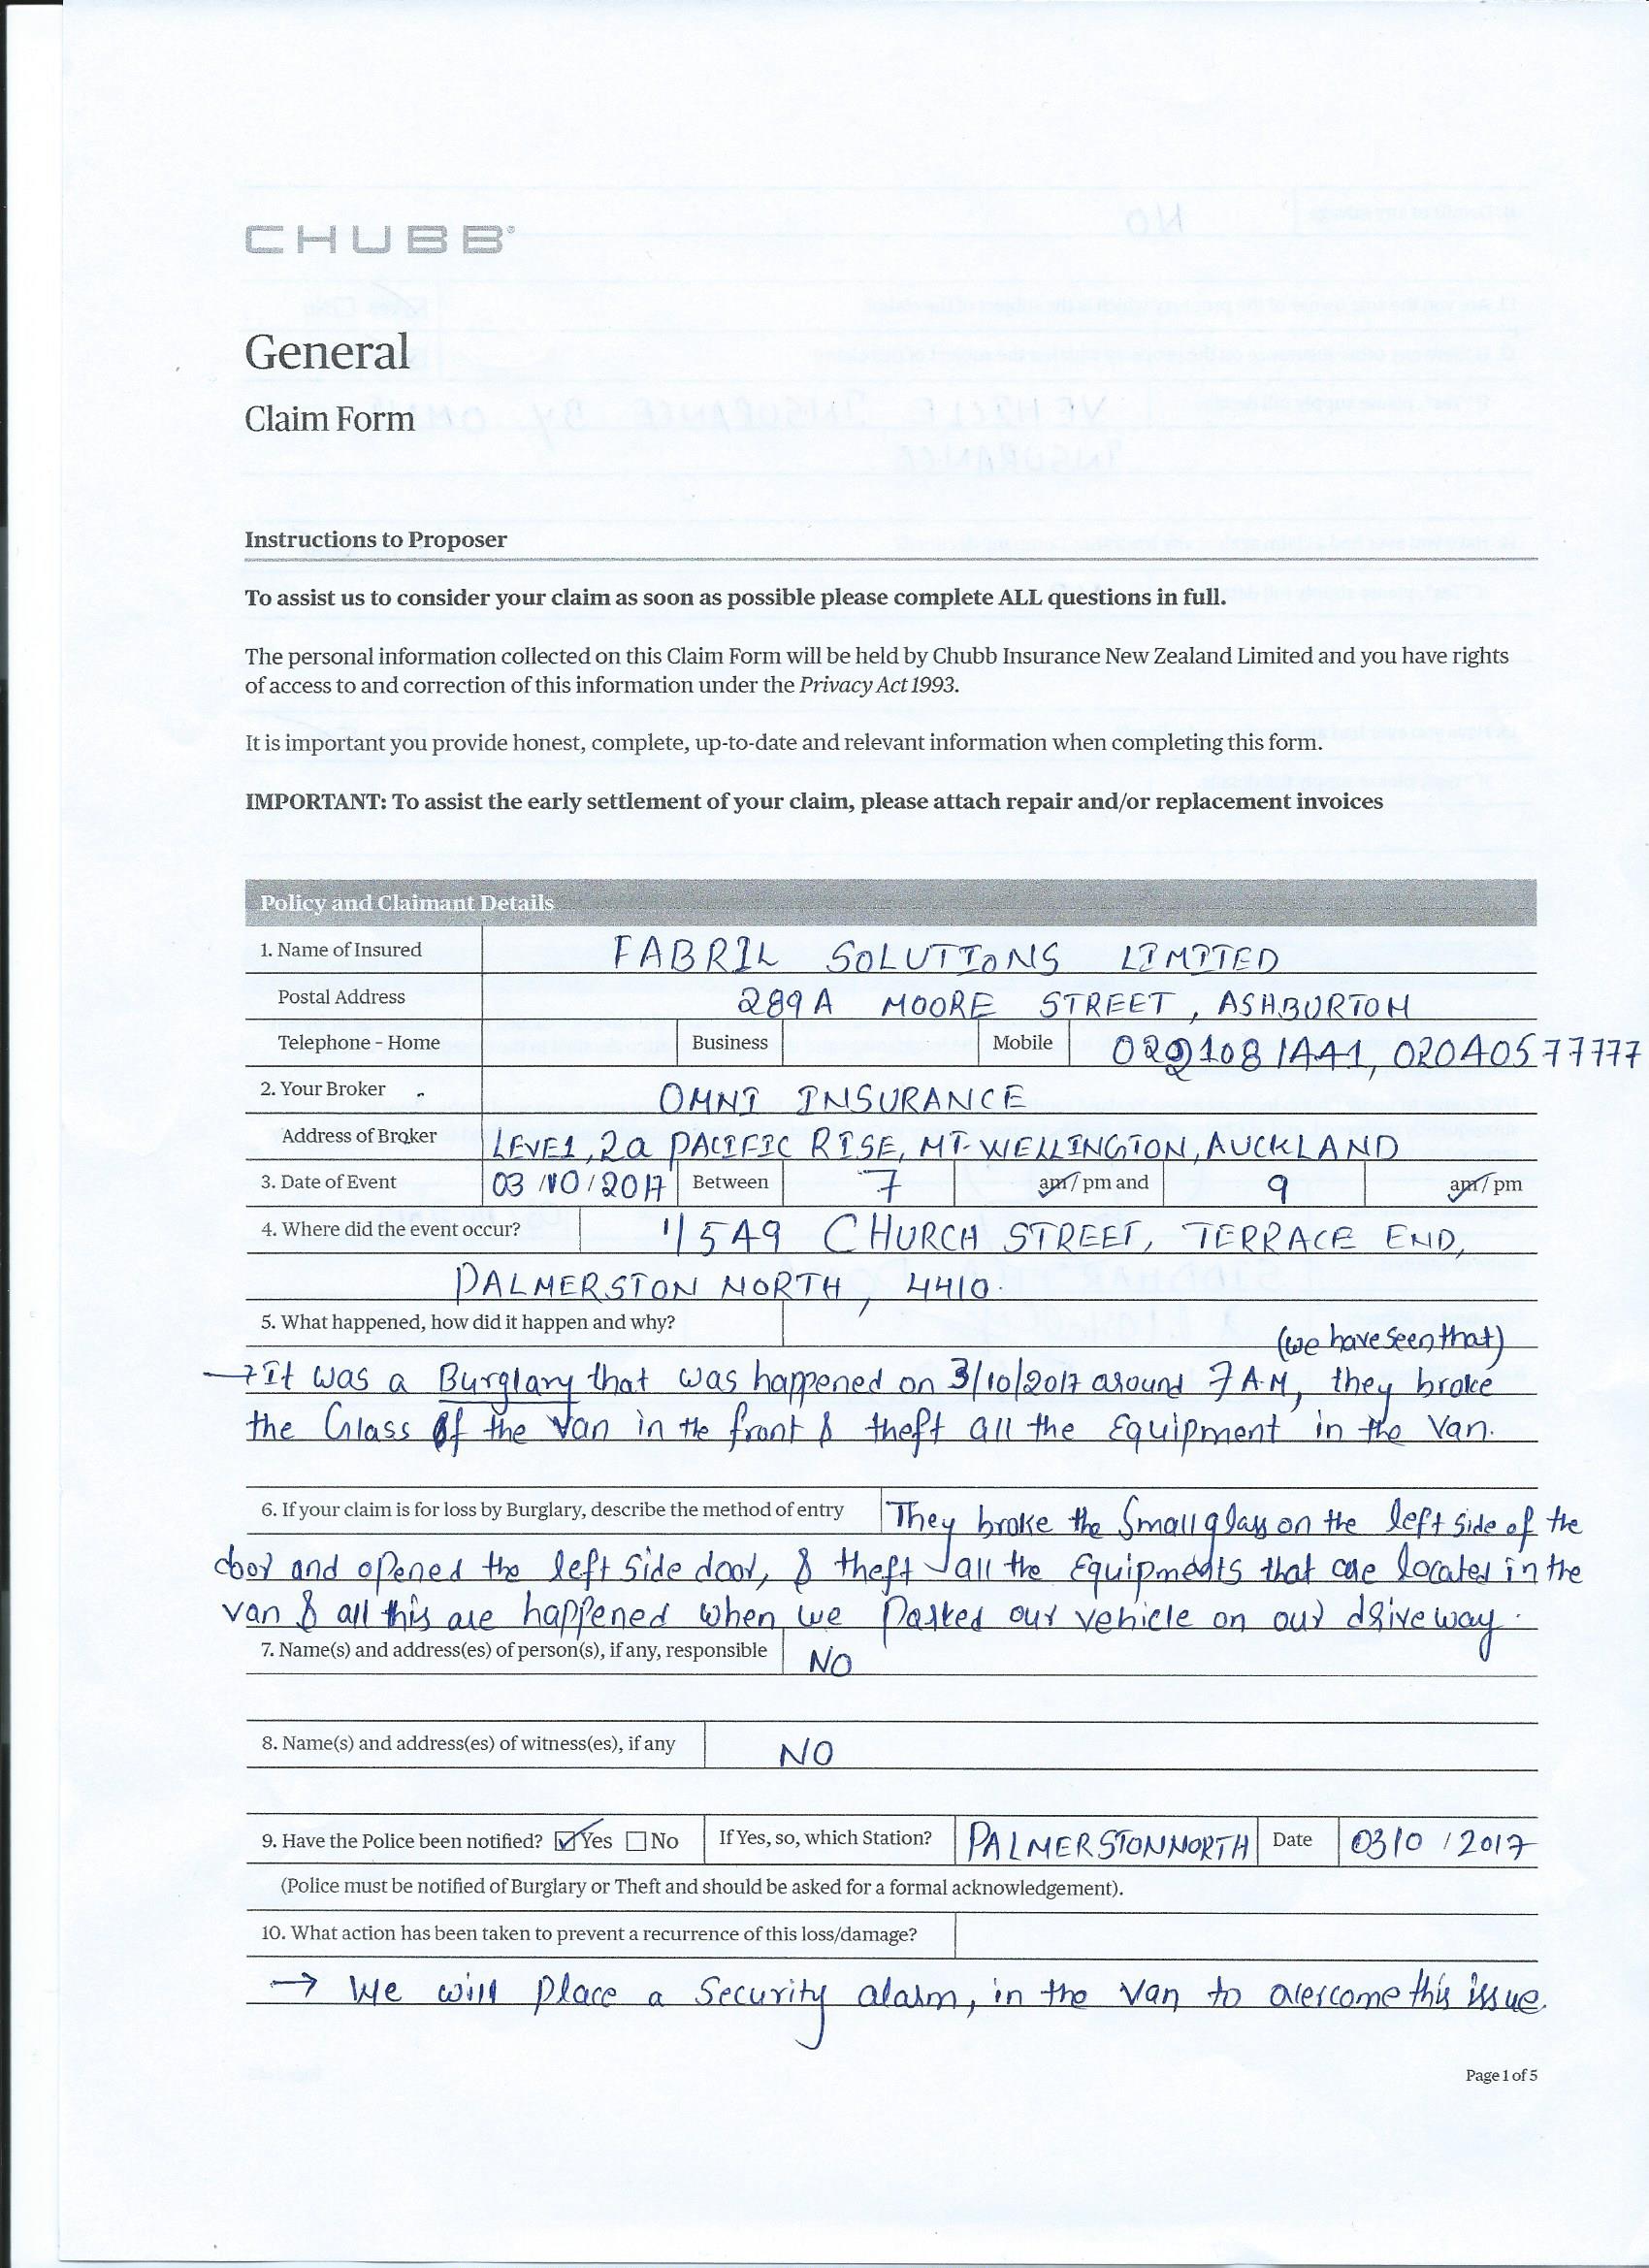 CHUBB®
General
Claim Form
Instructions to Proposer
To assist us to consider your claim as soon as possible please complete ALL questions in full.
The personal information collected on this Claim Form will be held by Chubb Insurance New Zealand Limited and you have rights
of access to and correction of this information under the Privacy Act 1993.
It is important you provide honest, complete, up-to-date and relevant information when completing this form.
IMPORTANT: To assist the early settlement of your claim, please attach repair and/or replacement invoices
Policy and Claimant Details
1. Name of Insured FABRIL SOLUTIONS LIMITED
Postal Address 289A MOORE STREET, ASHBURTON
Telephone - Home Business Mobile 02040577777
2. Your Broker OMNI INSURANCE
Address of Broker LEVEL, 2a PACIFIC RISE, MT. WELLINGTON, AUCKLAND
3. Date of Event 03/10/2017 Between 7 am/pm and 9 am/pm
4. Where did the event occur? 1/549 CHURCH STREET, TERRACE END,
PALMERSTON NORTH, 4410.
5. What happened, how did it happen and why?
(we have seen that)
→ It was a Burglary that was happened on 3/10/2017 around 7 A.M, they broke
the Glass of the Van in the front & theft all the Equipment in the Van.
6. If your claim is for loss by Burglary, describe the method of entry They broke the Small glass on the left side of the
door and opened the left side door, & theft all the Equipments that are located in the
van & all this are happened when we Parked our vehicle on our driveway.
7. Name(s) and address(es) of person(s), if any, responsible NO
8. Name(s) and address(es) of witness(es), if any NO
9. Have the Police been notified? Yes No If Yes, so, which Station? PALMERSTON NORTH Date 03/0 /2017
(Police must be notified of Burglary or Theft and should be asked for a formal acknowledgement).
10. What action has been taken to prevent a recurrence of this loss/damage?
→ We will place a Security alarm, in the Van to overcome this issue.
Page 1 of 5